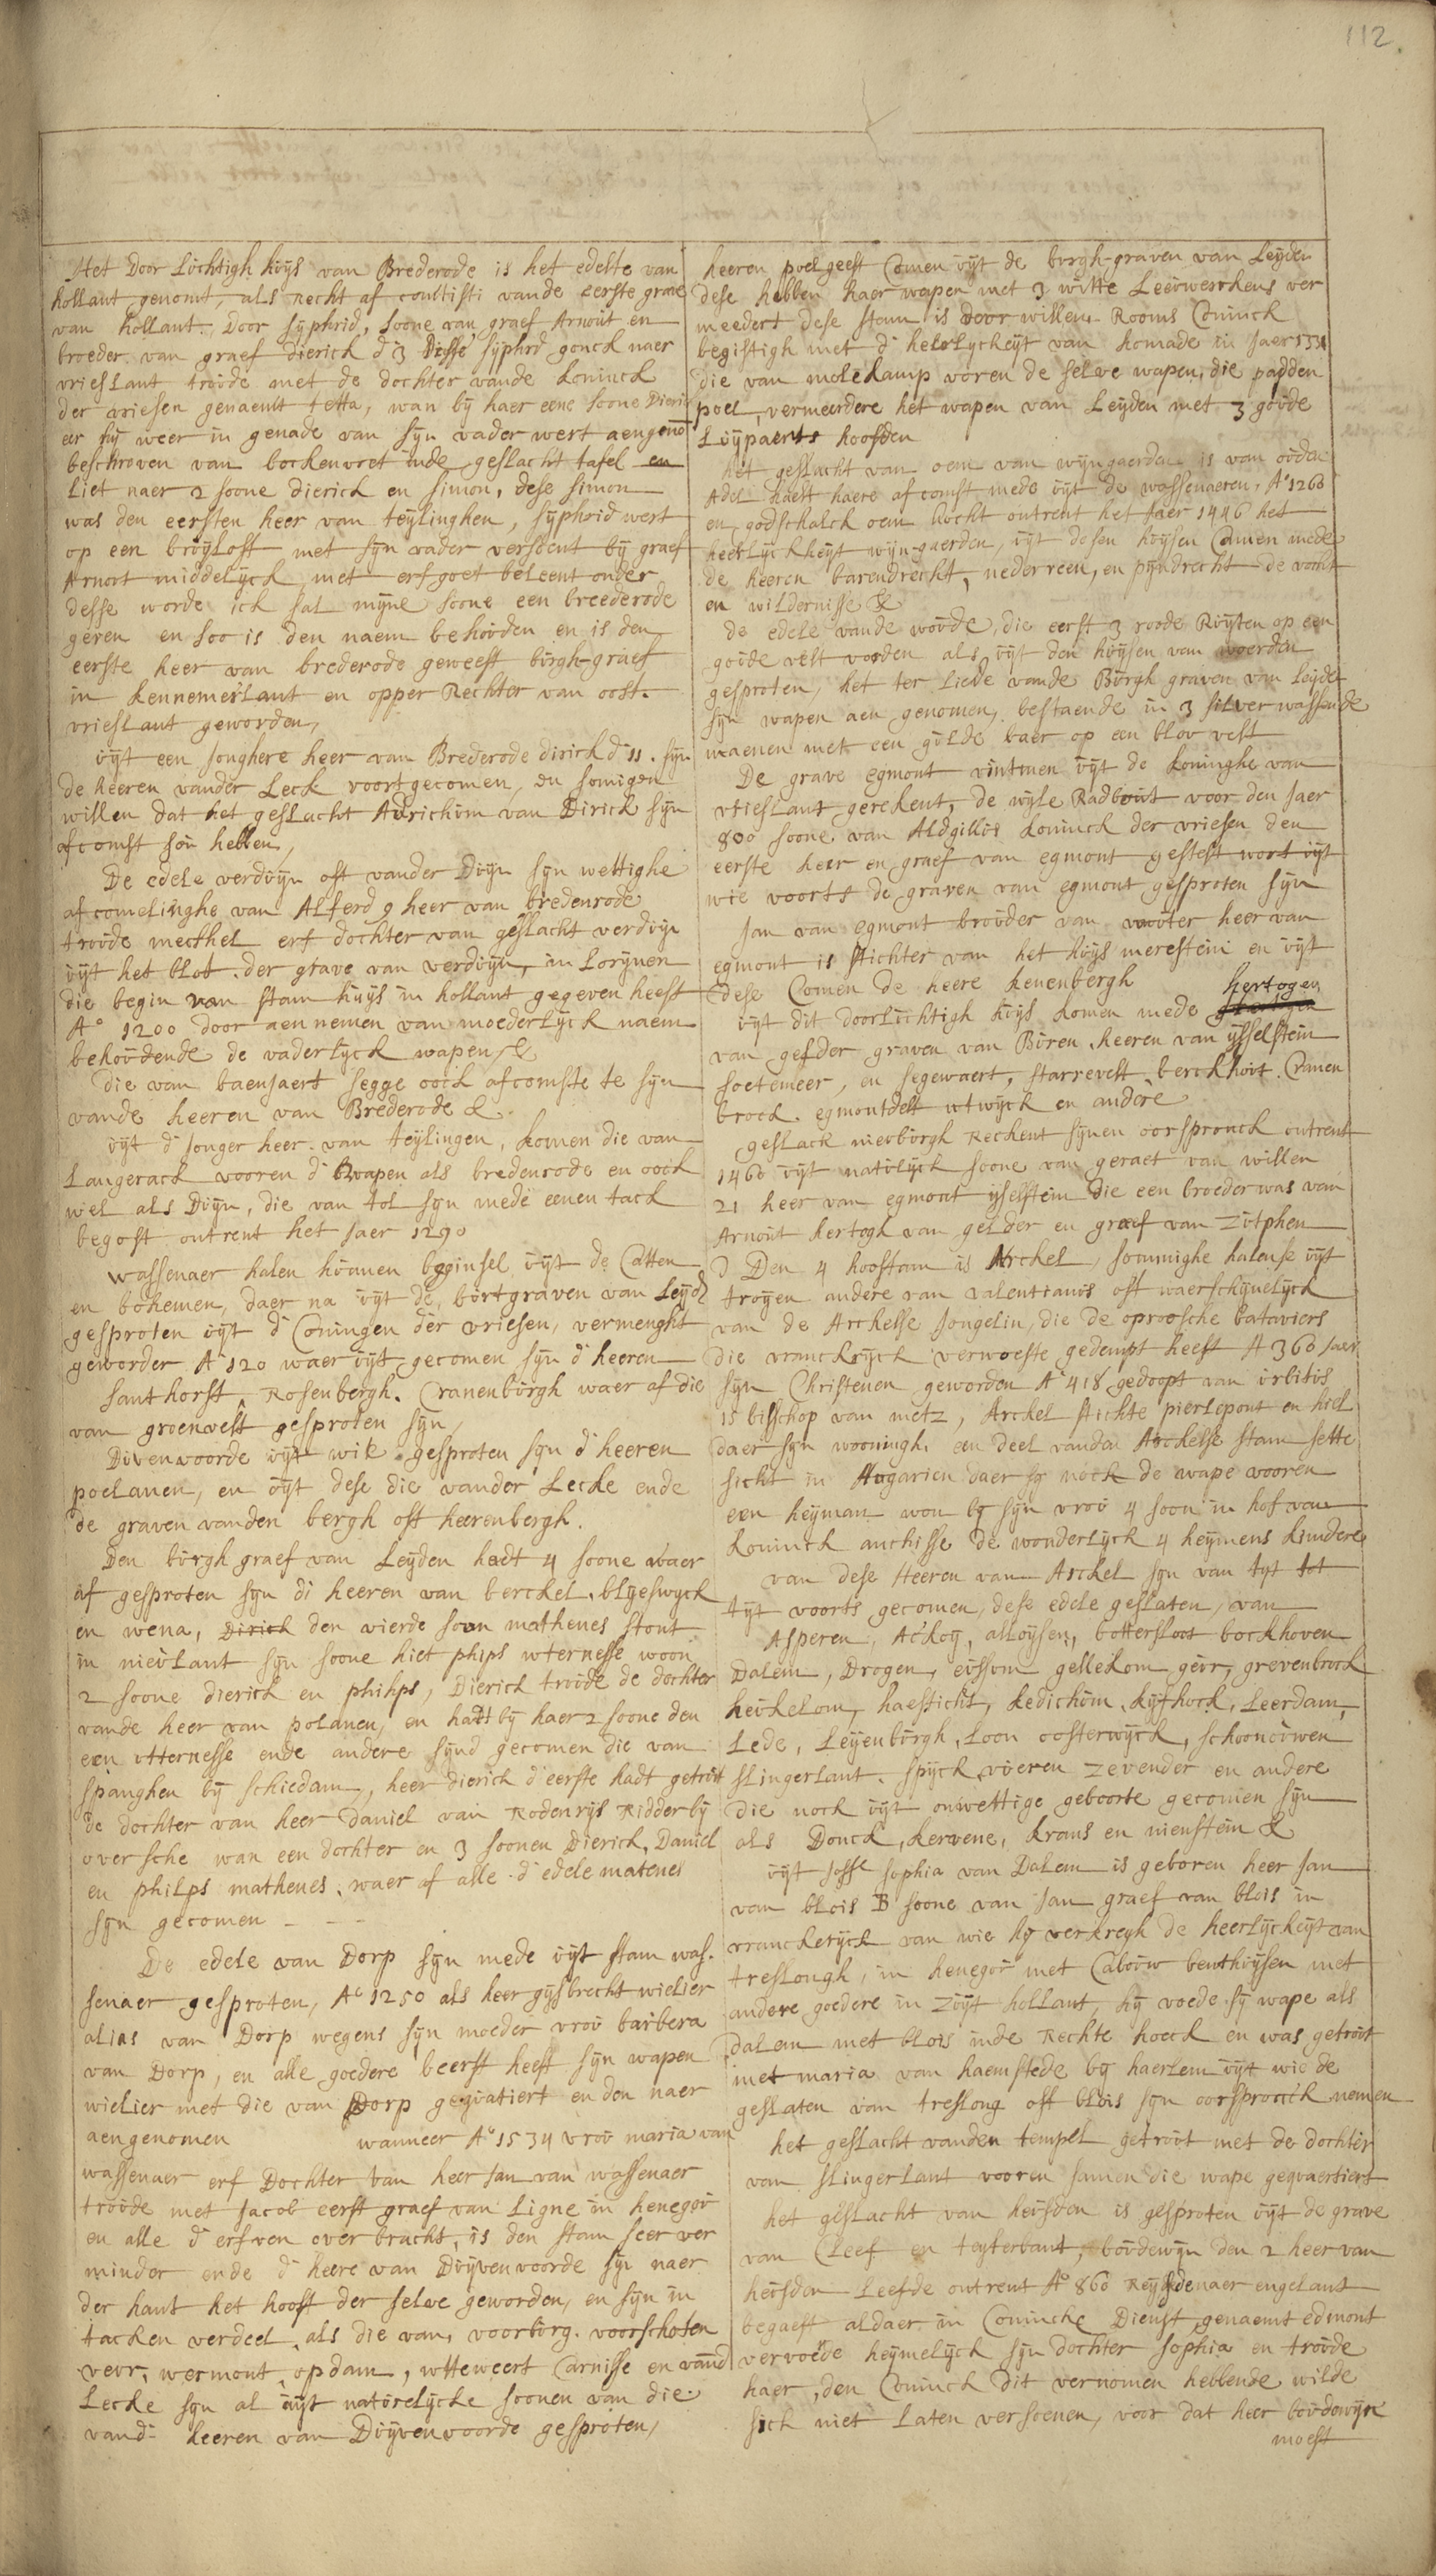 112.
Het Door Luchtigh huijs van Brederode is het edelte van
hollant genomt, als recht af comstisti vande eerste grave
van hollant. Door sijphrid, soone van graef Arnout en
broeder van graef dierick d 3 Desse sijphrid gonck naer
vrieslant troude met de dochter vande koninck
der vriesen genaemt tetta, wan bij haer eene soone Dierick
eer hij weer in genade van sijn vader wert aengenom
beschreven van bockenvoet inde geslacht tafel en
Liet naer 2 soone dierick en simon, dese simon
was den eersten heer van teylinghen, sijphrid wert
op een bruijloft met sijn vader versoent bij graef
Arnout middelijck met erfgoet beleent onder
desse worde ick sal mijne soone een breederode
geven en soo is den naem behouden en is den
eerste heer van brederode geweest burgh-graef
in kennemerlant en opper Rechter van oost-
vrieslant geworden,
uijt een Jonghere heer van Brederode dirick d 11. sijn
de heeren vander Leck voortgecomen, en somigen
willen dat het geslacht Adrichum van Dirick sijn
afcomst sou hebben,
De edele verduijn oft vander Duijn sijn wettighe
afcomelinghe van Alferd 9 heer van bredenrode
troude mecthel erf dochter van geslacht verduijn
uijt het blot der grave van verduijn, in Lorijnen
die begin van stam huijs in hollant gegeven heeft
Ao 1200 door aennemen van moederlijck naem
behoudende de vaderlijck wapen, &
Die van baensaert segge oock afcomste te sijn
vande heeren van Brederode &
uijt d Jonger heer van teylingen, komen die van
Langerack vooren d wapen als bredenrode en oock
wel als Duijn, die van tol sijn mede eenen tack
begost ontrent het Jaer 1290
Wassenaer halen huanen beginsel uijt de Catten
en bohemen, daer na uijt de burtgraven van Leijd
gesproten uijt d Coningen der vriesen, vermenght
geworder Ao 120 waer uijt gecomen sijn d heeren
santhorst, Rosenbergh, Cranenburgh waer af die
van groenvelt gesproten sijn,
Divenvoorde uijt wie gesproten sijn d heeren
poelanen, en uijt dese die vander Lecke ende
de graven vanden bergh oft heerenbergh.
Den burgh graef van Leyden hadt 4 soone waer
af gesproten sijn di heeren van berckel, blijeswyck
en wena, Dirick den vierde soon mathenes stont
in nieulant sijn soone hiet phips wternesse woon
2 soone dierick en philips, Dierick troude de dochter
vande heer van polanen, en hadt bij haer 2 soone den
een utternesse ende andere sijnd gecomen die van
spanghen bij schiedam, heer dierick d eerste hadt getrout
de dochter van heer Daniel van Rodenrijs Ridder bij
oversche wan een dochter en 3 soonen Dierick, Daniel
en philps mathenes, waer af alle d edele matenes
sijn gecomen - - -
De edele van Dorp sijn mede uijt stam was-
senaer gesproten, Ao 1250 als heer gijsbrecht wielier
alias van Dorp wegens sijn moeder vrou barbera
van Dorp, en alle goedere beerft heeft sijn wapen
wielier met die van Dorp gequatiert en den naer
aengenomen wanneer Ao 1534 vrou maria van
wassenaer erf Dochter van heer Jan van wassenaer
troude met Jacob eerst graef van Ligne in henegou
en alle d erfven over bracht, is den stam seer ver
minder ende d heere van Duijvenvoorde sijn naer
der hant het hooft der selve geworden, en sijn in
tacken verdeel, als die van, voorburg, voorschoten
veur, wermont, opdam, wtteweert Carnisse en vand
Lecke sijn al uijt naturelijcke soonen van die
vand- heeren van Duijvenvoorde gesproten,
heeren poelgeest Comen uijt de burgh-graven van Leyden
dese hebben haer wapen met 3 witte Leeuwerckens ver
meedert dese stam is door willem Rooms Coninck
begiftigh met d heerlyckeyt van homade in Jaer 1331
die van molekamp voren de selve wapen, die padden
poel, vermeerdere het wapen van Leyden met 3 goude
Luijpaerts hoofden
het geslacht van oem van wijngaerden is van ouden
Adel haelt haere afcomst mede uijt de wassenaeren, Ao 1260
en godschalck oem kocht ontrent het Jaer 1446 het
heerlyckheyt wijn-gaerden, uijt desen huijsen Comen mede
de heeren barendrecht, nederveen, en pijndrecht de vocht
en wildernisse &
de edele vande woude, die eerst 3 roode Ruijten op een
goude velt voorden als uijt den huijsen van woerden
gesproten, het ter Liede vande Burgh graven van Leyde
sijn wapen aen genomen, bestaende in 3 silver wassende
maenen met een gulde baer op een blov velt
De grave Egmont vintmen uijt de koninghe van
vrieslant gerekent, de wijle Radbout voor den Jaer
800 soone van Aldgillis koninck der vriesen den
eerste heer en graef van egmont gestelt wort uijt
wie voorts de graven van egmont gesproten sijn
Jan van egmont brouder van wouter heer van
egmont is stichter van het huijs merestein en uijt
dese Comen de heere kenenbergh
uijt dit doorluchtigh huijs komen mede hertogen
van gelder graven van Buren, heeren van ijsselstein
soetemeer, en segewaert, starrevelt, berckhout, Cranen
broeck, egmontdelt utwyck en andere
geslack nieuburgh Rechent sijnen oorspronck ontrent
1460 uijt natulijck soone van geraet van willem
21 heer van egmont ijselstein die een broeder was van
Arnout hertogh van gelder en graef van Zutphen
D Den 4 hoofstam is Arckel, sommighe halense uijt
troyen andere van valentianis oft waerschijnelijck
van de Arckelse Jongelin, die de oproersche bataviers
die vranckrijck verwoeste gedempt heeft A 360 Jaer
sijn Christenen geworden Ao 418 gedoopt van urbitis
15 bisschop van metz, Arckel stichte pierlepont en hiel
daer sijn wooningh, een deel vanden Arckelse stam sette
sicht in Hugarien daer sij noch de wape vooren
een heyman won bij sijn vrou 4 soon in hof van
koninck anchisse de wonderlijck 4 heymens kindere
van dese Heeren van Arckel sijn van tijt tot
tijt voorts gecomen, dese edele geslaten, van
Asperen, Ackoy, alloysen, bottersloot bockhoven
Dalem, Drogen, eussom gellekom geur, grevenbroeck
heukelom, haesticht, kedichum, kijfhock, Leerdam,
Lede, Leyenburgh, Loon oosterwyck, schoonouwen
slingerlant, spyck, vieren zevender en andere
die noch uijt onwettige geboorte gecomen sijn
als Donck, kervene, krans en nienstein &
uijt Joffe sophia van Dalem is geboren heer Jan
van blois B soone van Jan graef van blois in
vranckerijck van wie hij verkregh de heerlyckeyt van
treslongh, in henegou met Cabouw benthuijsen met
andere goedere in Zuijt hollant, hij voede sij wape als
Dalem met blois inde Rechte hoeck en was getrout
met maria van haemstede bij haerlem uijt wie de
geslaten van treslong oft blois sijn oorspronck nemen
het geslacht vanden tempel getrout met de dochter
van slingerlant vooren samen die wape gequaertiert
het geslacht van heusden is gesproten uijt de grave
van Cleef en teyterbant, boudewijn den 2 heer van
heusden Leefde ontrent Ao 860 Reijsde naer engelant
begaeft aldaer in Conincks Dienst genaemt edmont
vervoede heymelijck sijn dochter sophia en troude
haer, den Coninck dit vernomen hebbende wilde
sich niet Laten versoenen, voor dat heer boudewijn
moest